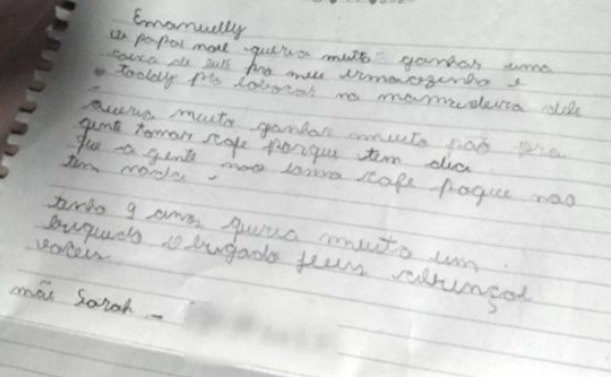 Emanuelly
oi papai noel queria muito ganhar uma
caixa de leite pro meu irmaozinho e
toddy pra colocar na mamadeira dele
queria muito ganhar muito pão pra
gente tomar cafe porque tem dia
que a gente nao toma cafe poque nao
tem nada.
tenho 9 anos queria muito um
briquedo obrigada jeus abençoi
voceis
mãe Sarah -